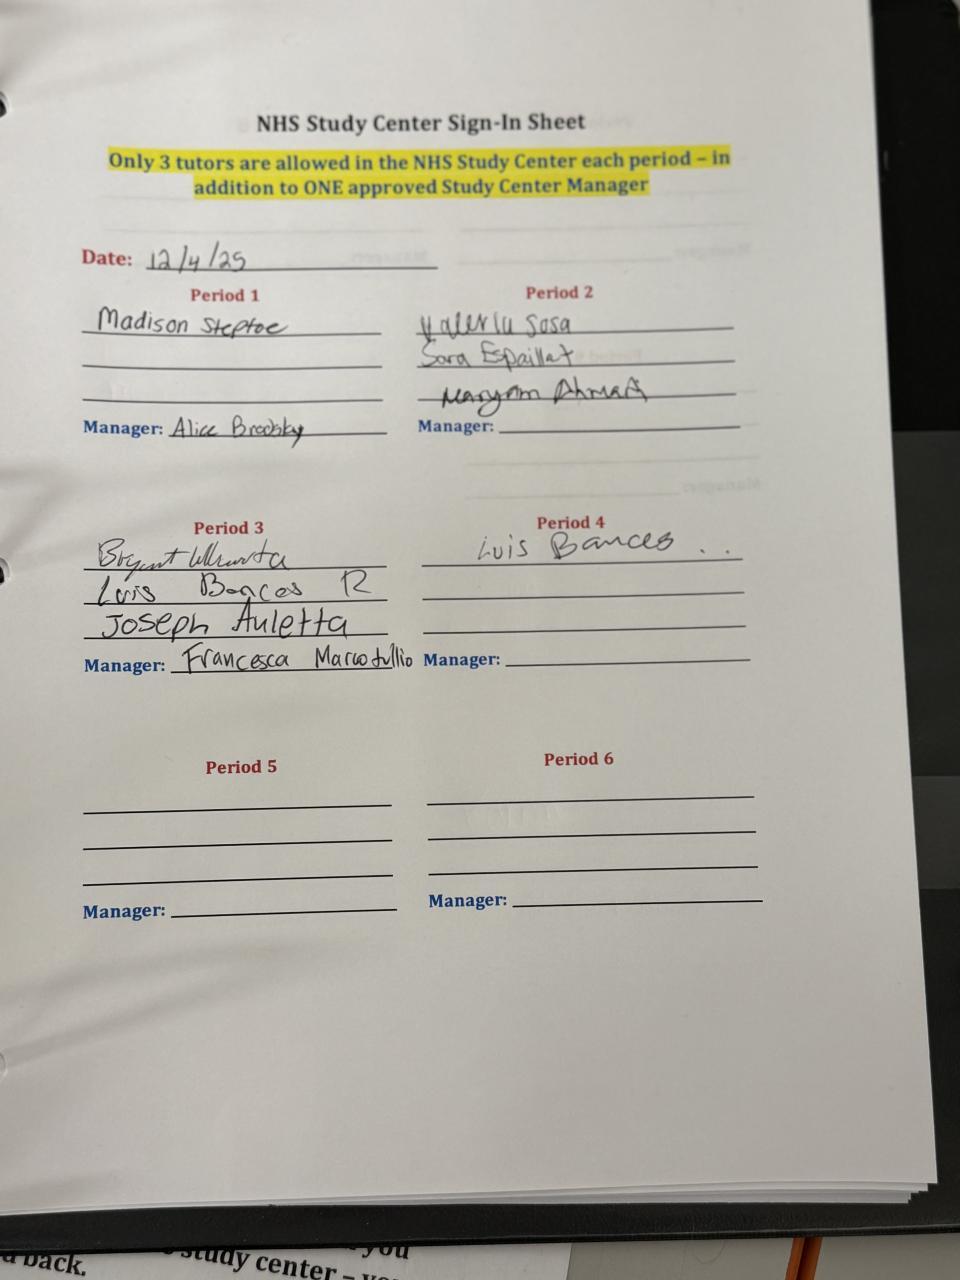 NHS Study Center Sign-In Sheet
Only 3 tutors are allowed in the NHS Study Center each period – in
addition to ONE approved Study Center Manager
Date: 12/4/25
Period 1
Madison Steptoe
Manager: Alice Brodsky
Period 2
Valeria Sosa
Sara Espaillat
Maryam Ahmad
Manager:
Period 3
Bryant
Luis Bances R
Joseph Auletta
Manager: Francesca Marcotullio
Period 4
Luis Bances . .
Manager:
Period 5
Manager:
Period 6
Manager:
you
back.
study center –